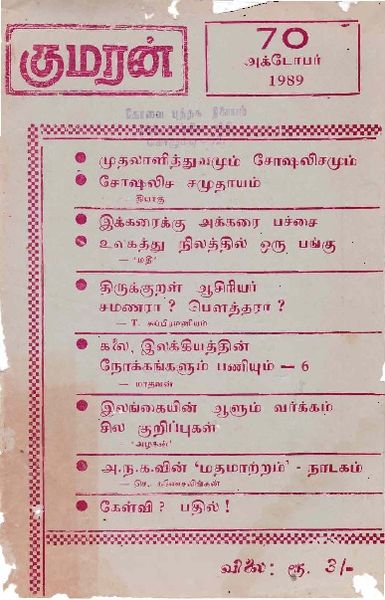 குமரன்
70
அக்டோபர்
1989
கோவை புத்தக நிலையம்
முதலாளித்துவமும் சோஷலிசமும்
சோஷலிச சமுதாயம்
இக்கரைக்கு அக்கரை பச்சை
உலகத்து நிலத்தில் ஒரு பங்கு
— 'மதி'
திருக்குறள் ஆசிரியர்
சமணரா ? பௌத்தரா ?
— T. சுப்பிரமணியம்
கலை, இலக்கியத்தின்
நோக்கங்களும் பணியும் — 6
— மாதவன்
இலங்கையின் ஆளும் வர்க்கம்
சில குறிப்புகள்
அ.ந.க.வின் 'மதமாற்றம்' - நாடகம்
— செ. கணேசலிங்கன்
கேள்வி ? பதில் !
விலை: ரூ. 3/-